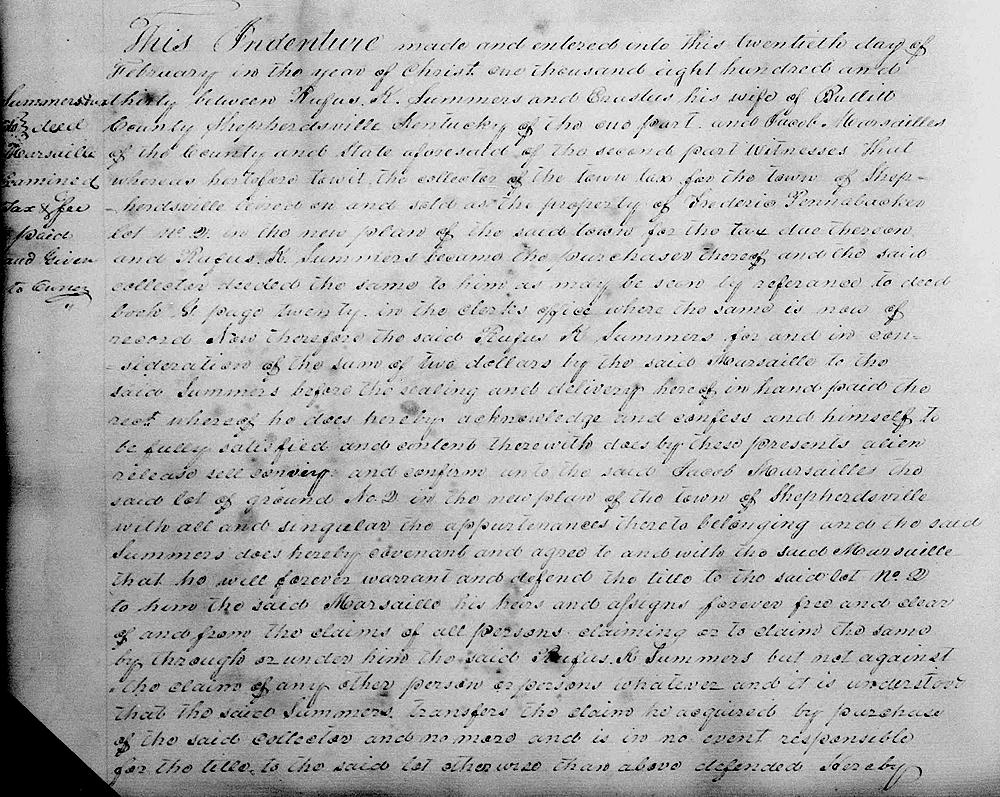 This Indenture made and entered into this twentieth day of
February in the year of Christ one thousand eight hundred and
thirty between Rufus. K. Summers and Erastus his wife of Bullitt
County Shepherdsville Kentucky of the one part and Jacob Marsailles
of the County and State aforesaid of the second part Witnesses that
whereas heretofore towit, the collector of the town tax for the town of Shep-
-herdsville levied on and sold as the property of Frederic Pennabacker
lot No. 2. in the new plan of the said town for the tax due thereon
and Rufus. K. Summers became the purchaser thereof and the said
collector deeded the same to him as may be seen by referance to deed
book G page twenty. in the clerks office where the same is now of
record Now therefore the said Rufus K Summers for and in con-
-sideration of the sum of two dollars by the said Marsaille to the
said Summers before the sealing and delivery hereof in hand paid the
rect. whereof he does hereby acknowledge and confess and himself to
be fully satisfied and content therewith does by these presents alien
release sell convey and confirm unto the said Jacob Marsailles the
said lot of ground No 2 in the new plan of the town of Shepherdsville
with all and singular the appurtenances thereto belonging and the said
Summers does hereby covenant and agree to and with the said Marsaille
that he will forever warrant and defend the title to the said lot No 2
to him the said Marsaille his heirs and assigns forever free and clear
of and from the claims of all persons claiming or to claim the same
by through or under him the said Rufus. K Summers but not against
the claim of any other person or persons whatever and it is understood
that the said Summers. transfers the claim he acquired by purchase
of the said collector and no more and is in no event responsible
for the title to the said lot otherwise than above defended Hereby
Summers &c
To } deed
Marsaille
Examined
Tax & fee
paid
and Given
to Owner